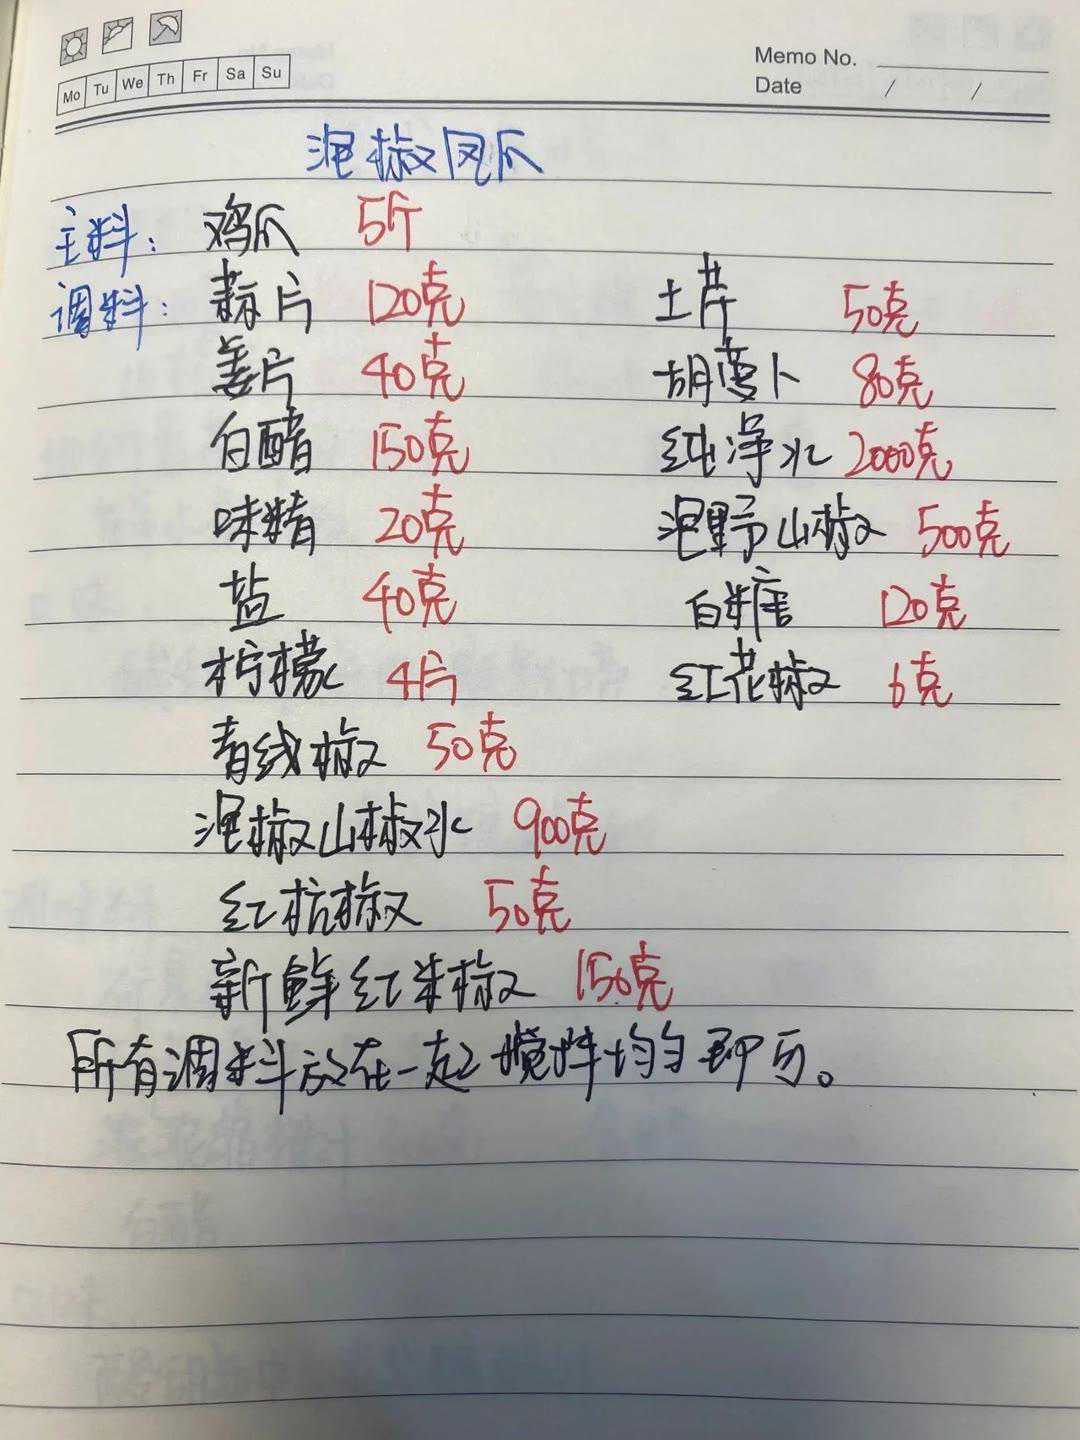 Mo Tu We Th Fr Sa Su
Memo No.
Date / /
泡椒凤爪
主料: 鸡爪 5斤
调料: 蒜片 120克 土芹 50克
姜片 40克 胡萝卜 80克
白醋 150克 纯净水 2000克
味精 20克 泡野山椒 500克
盐 40克 白糖 120克
柠檬 4片 红花椒 6克
青线椒 50克
泡椒山椒水 900克
红杭椒 50克
新鲜红米椒 150克
所有调料放在一起搅拌均匀即可。